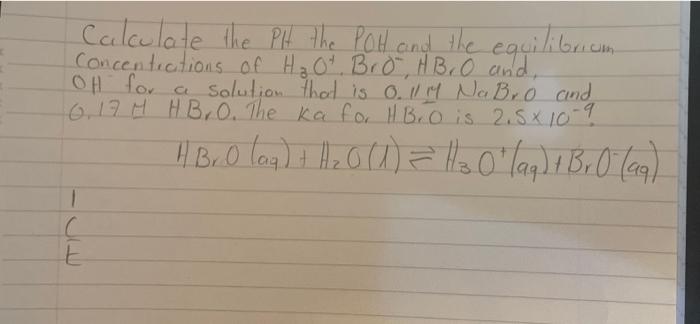 Calculate the PH the POH and the equilibrium
Concentrations of H₃O⁺, BrO⁻, HBrO and,
OH⁻ for a solution that is 0.11M NaBrO and
0.17M HBrO. The ka for HBrO is 2.5×10⁻⁹.
HBrO(aq) + H₂O(l) ⇌ H₃O⁺(aq) + BrO⁻(aq)
I
C
E